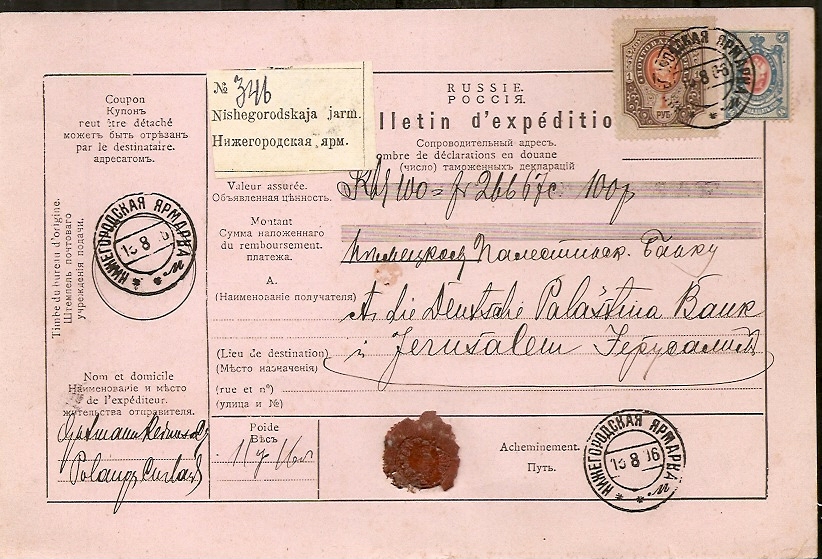 Coupon
Купонъ
peut être détaché
можетъ быть отрѣзанъ
par le destinataire.
адресатомъ.
Timbe du bureu d'origine.
Штемпель почтоваго
учрежденія подачи.
НИЖЕГОРОДСКАЯ ЯРМАРКА
Nom et domicile
Наименованіе и мѣсто
de l'expéditeur.
жительства отправителя.
№ 346
Nishegorodskaja jarm.
Нижегородская ярм.
RUSSIE.
РОССІЯ.
lletin d'expéditio
Сопроводительный адресъ.
ombre de déclarations en douane
(число) таможенныхъ декларацій
1 РУБ
Valeur assurée.
Объявленная цѣнность.
100р
Montant
Сумма наложеннаго
du remboursement.
платежа.
Палестинск. Банку
A.
(Наименованіе получателя)
An die Deutsche Palästina Bank
(Lieu de destination)
in Jerusalem Іерусалимъ
(Мѣсто назначенія)
(rue et n°)
(улица и №)
Poide
Вѣсъ
Acheminement.
Путь.
НИЖЕГОРОДСКАЯ ЯРМАРКА